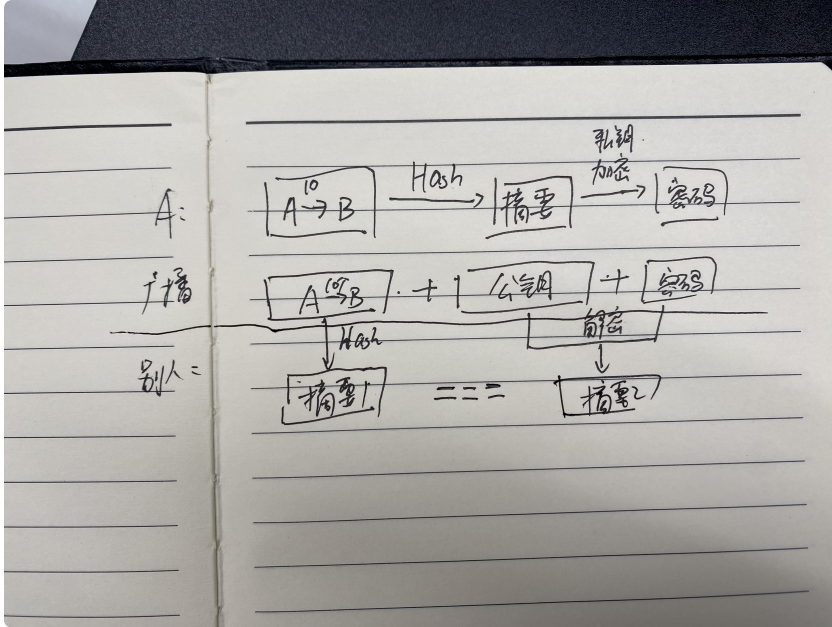 私钥
A: 10 A→B Hash 摘要 加密 密码
广播 A 10 →B + 公钥 + 密码
Hash 解密
别人: 摘要1 === 摘要2